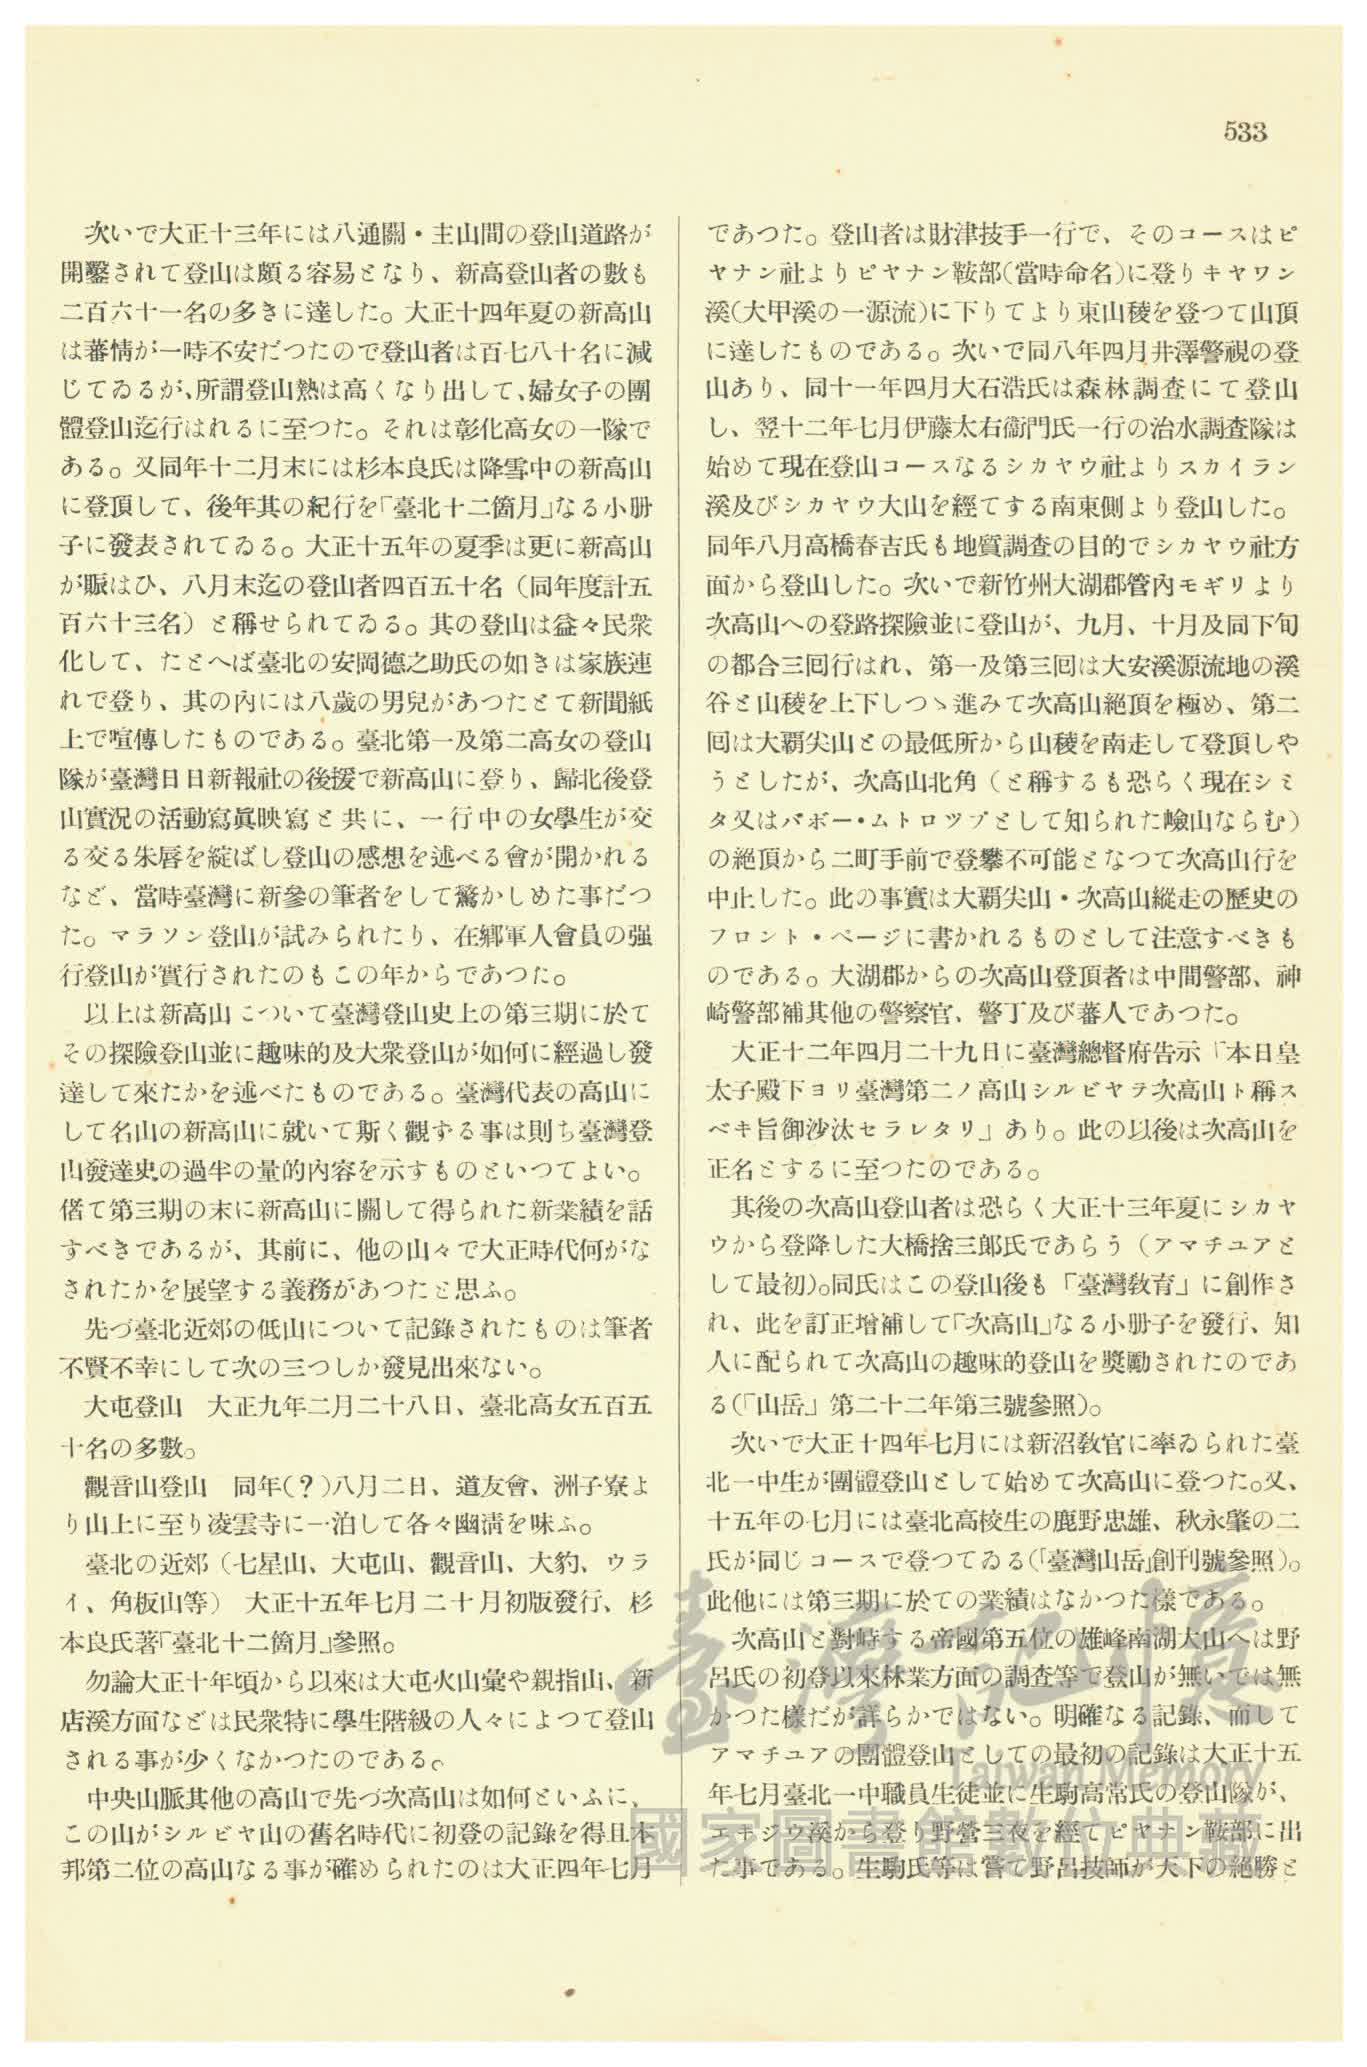 533
次いで大正十三年には八通關・主山間の登山道路が
開鑿されて登山は頗る容易となり、新高登山者の數も
二百六十一名の多きに達した。大正十四年夏の新高山
は蕃情が一時不安だつたので登山者は百七八十名に減
じてゐるが、所謂登山熟は高くなり出して、婦女子の團
體登山迄行はれるに至つた。それは彰化高女の一隊で
ある。又同年十二月末には杉本良氏は降雪中の新高山
に登頂して、後年其の紀行を「臺北十二箇月」なる小册
子に發表されてゐる。大正十五年の夏季は更に新高山
が賑はひ、八月末迄の登山者四百五十名（同年度計五
百六十三名）と稱せられてゐる。其の登山は益々民衆
化して、たとへば臺北の安岡德之助氏の如きは家族連
れで登り、其の內には八歲の男兒があつたとて新聞紙
上で喧傳したものである。臺北第一及第二高女の登山
隊が臺灣日日新報社の後援で新高山に登り、歸北後登
山實況の活動寫眞映寫と共に、一行中の女學生が交
る交る朱唇を綻ばし登山の感想を述べる會が開かれる
など、當時臺灣に新參の筆者をして驚かしめた事だつ
た。マラソン登山が試みられたり、在鄕軍人會員の强
行登山が實行されたのもこの年からであつた。
以上は新高山について臺灣登山史上の第三期に於て
その探險登山並に趣味的及大衆登山が如何に經過し發
達して來たかを述べたものである。臺灣代表の高山に
して名山の新高山に就いて斯く觀ずる事は則ち臺灣登
山發達史の過半の量的內容を示すものといつてよい。
偖て第三期の末に新高山に關して得られた新業績を話
すべきであるが、其前に、他の山々で大正時代何がな
されたかを展望する義務があつたと思ふ。
先づ臺北近郊の低山について記錄されたものは筆者
不賢不幸にして次の三つしか發見出來ない。
大屯登山　大正九年二月二十八日、臺北高女五百五
十名の多數。
觀音山登山　同年(?)八月二日、道友會、洲子寮よ
り山上に至り凌雲寺に一泊して各々幽淸を味ふ。
臺北の近郊（七星山、大屯山、觀音山、大豹、ウラ
イ、角板山等）　大正十五年七月二十月初版發行、杉
本良氏著「臺北十二箇月」參照。
勿論大正十年頃から以來は大屯火山彙や親指山、新
店溪方面などは民衆特に學生階級の人々によつて登山
される事が少くなかつたのである。
中央山脈其他の高山で先づ次高山は如何といふに、
この山がシルビヤ山の舊名時代に初登の記錄を得且本
邦第二位の高山なる事が確められたのは大正四年七月
であつた。登山者は財津技手一行で、そのコースはピ
ヤナン社よりピヤナン鞍部(當時命名)に登りキヤワン
溪(大甲溪の一源流)に下りてより東山稜を登つて山頂
に達したものである。次いで同八年四月井澤警視の登
山あり、同十一年四月大石浩氏は森林調査にて登山
し、翌十二年七月伊藤太右衞門氏一行の治水調查隊は
始めて現在登山コースなるシカヤウ社よりスカイラン
溪及びシカヤウ大山を經てする南東側より登山した。
同年八月高橋春吉氏も地質調查の目的でシカヤウ社方
面から登山した。次いで新竹州大湖郡管內モギリより
次高山への登路探險並に登山が、九月、十月及同下旬
の都合三囘行はれ、第一及第三囘は大安溪源流地の溪
谷と山稜を上下しつゝ進みて次高山絕頂を極め、第二
囘は大霸尖山との最低所から山稜を南走して登頂しや
うとしたが、次高山北角（と稱するも恐らく現在シミ
タ又はバボー・ムトロツプとして知られた嶮山ならむ）
の絕頂から二町手前で登攀不可能となつて次高山行を
中止した。此の事實は大霸尖山・次高山縱走の歷史の
フロント・ページに書かれるものとして注意すべきも
のである。大湖郡からの次高山登頂者は中間警部、神
崎警部補其他の警察官、警丁及び蕃人であつた。
大正十二年四月二十九日に臺灣總督府告示「本日皇
太子殿下ヨリ臺灣第二ノ高山シルビヤヲ次高山ト稱ス
ベキ旨御沙汰セラレタリ」あり。此の以後は次高山を
正名とするに至つたのである。
其後の次高山登山者は恐らく大正十三年夏にシカヤ
ウから登降した大橋捨三郞氏であらう（アマチユアと
して最初)。同氏はこの登山後も「臺灣敎育」に創作さ
れ、此を訂正增補して「次高山」なる小册子を發行、知
人に配られて次高山の趣味的登山を奬勵されたのであ
る(「山岳」第二十二年第三號參照)。
次いで大正十四年七月には新沼敎官に率ゐられた臺
北一中生が團體登山として始めて次高山に登つた。又、
十五年の七月には臺北高校生の鹿野忠雄、秋永肇の二
氏が同じコースで登つてゐる(「臺灣山岳」創刊號參照)。
此他には第三期に於ての業績はなかつた樣である。
次高山と對峙する帝國第五位の雄峰南湖大山へは野
呂氏の初登以來林業方面の調査等で登山が無いでは無
かつた樣だが詳らかではない。明確なる記錄、而して
アマチユアの團體登山としての最初の記錄は大正十五
年七月臺北一中職員生徒並に生駒高常氏の登山隊が、
エキジウ溪から登り野營三夜を經てピヤナン鞍部に出
た事である。生駒氏等は嘗て野呂技師が天下の絕勝と
臺灣記憶
Taiwan Memory
國家圖書館數位典藏